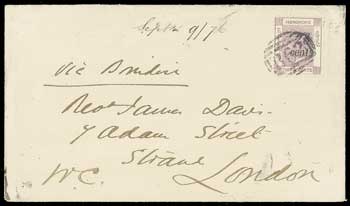 Septr 9/76
HONGKONG
cents
via Brindisi
Revd James Davis.
7 Adam Street
Strand
W.C. London